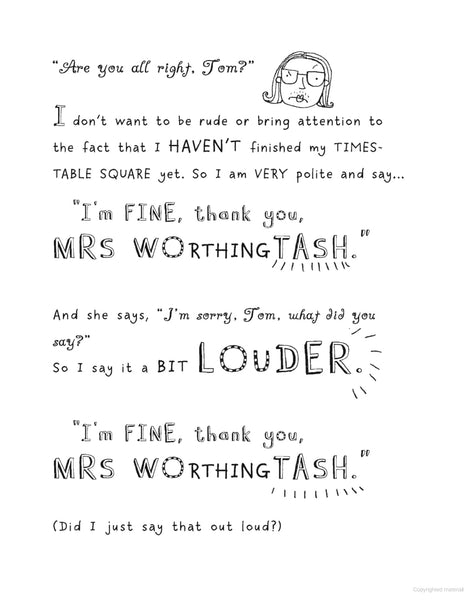 “Are you all right, Tom?”
I don't want to be rude or bring attention to
the fact that I HAVEN'T finished my TIMES-
TABLE SQUARE yet. So I am VERY polite and say...
“I'm FINE, thank you,
MRS WORTHINGTASH.”
And she says, “I'm sorry, Tom, what did you
say?”
So I say it a BIT LOUDER.
“I'm FINE, thank you,
MRS WORTHINGTASH.”
(Did I just say that out loud?)
Copyrighted material